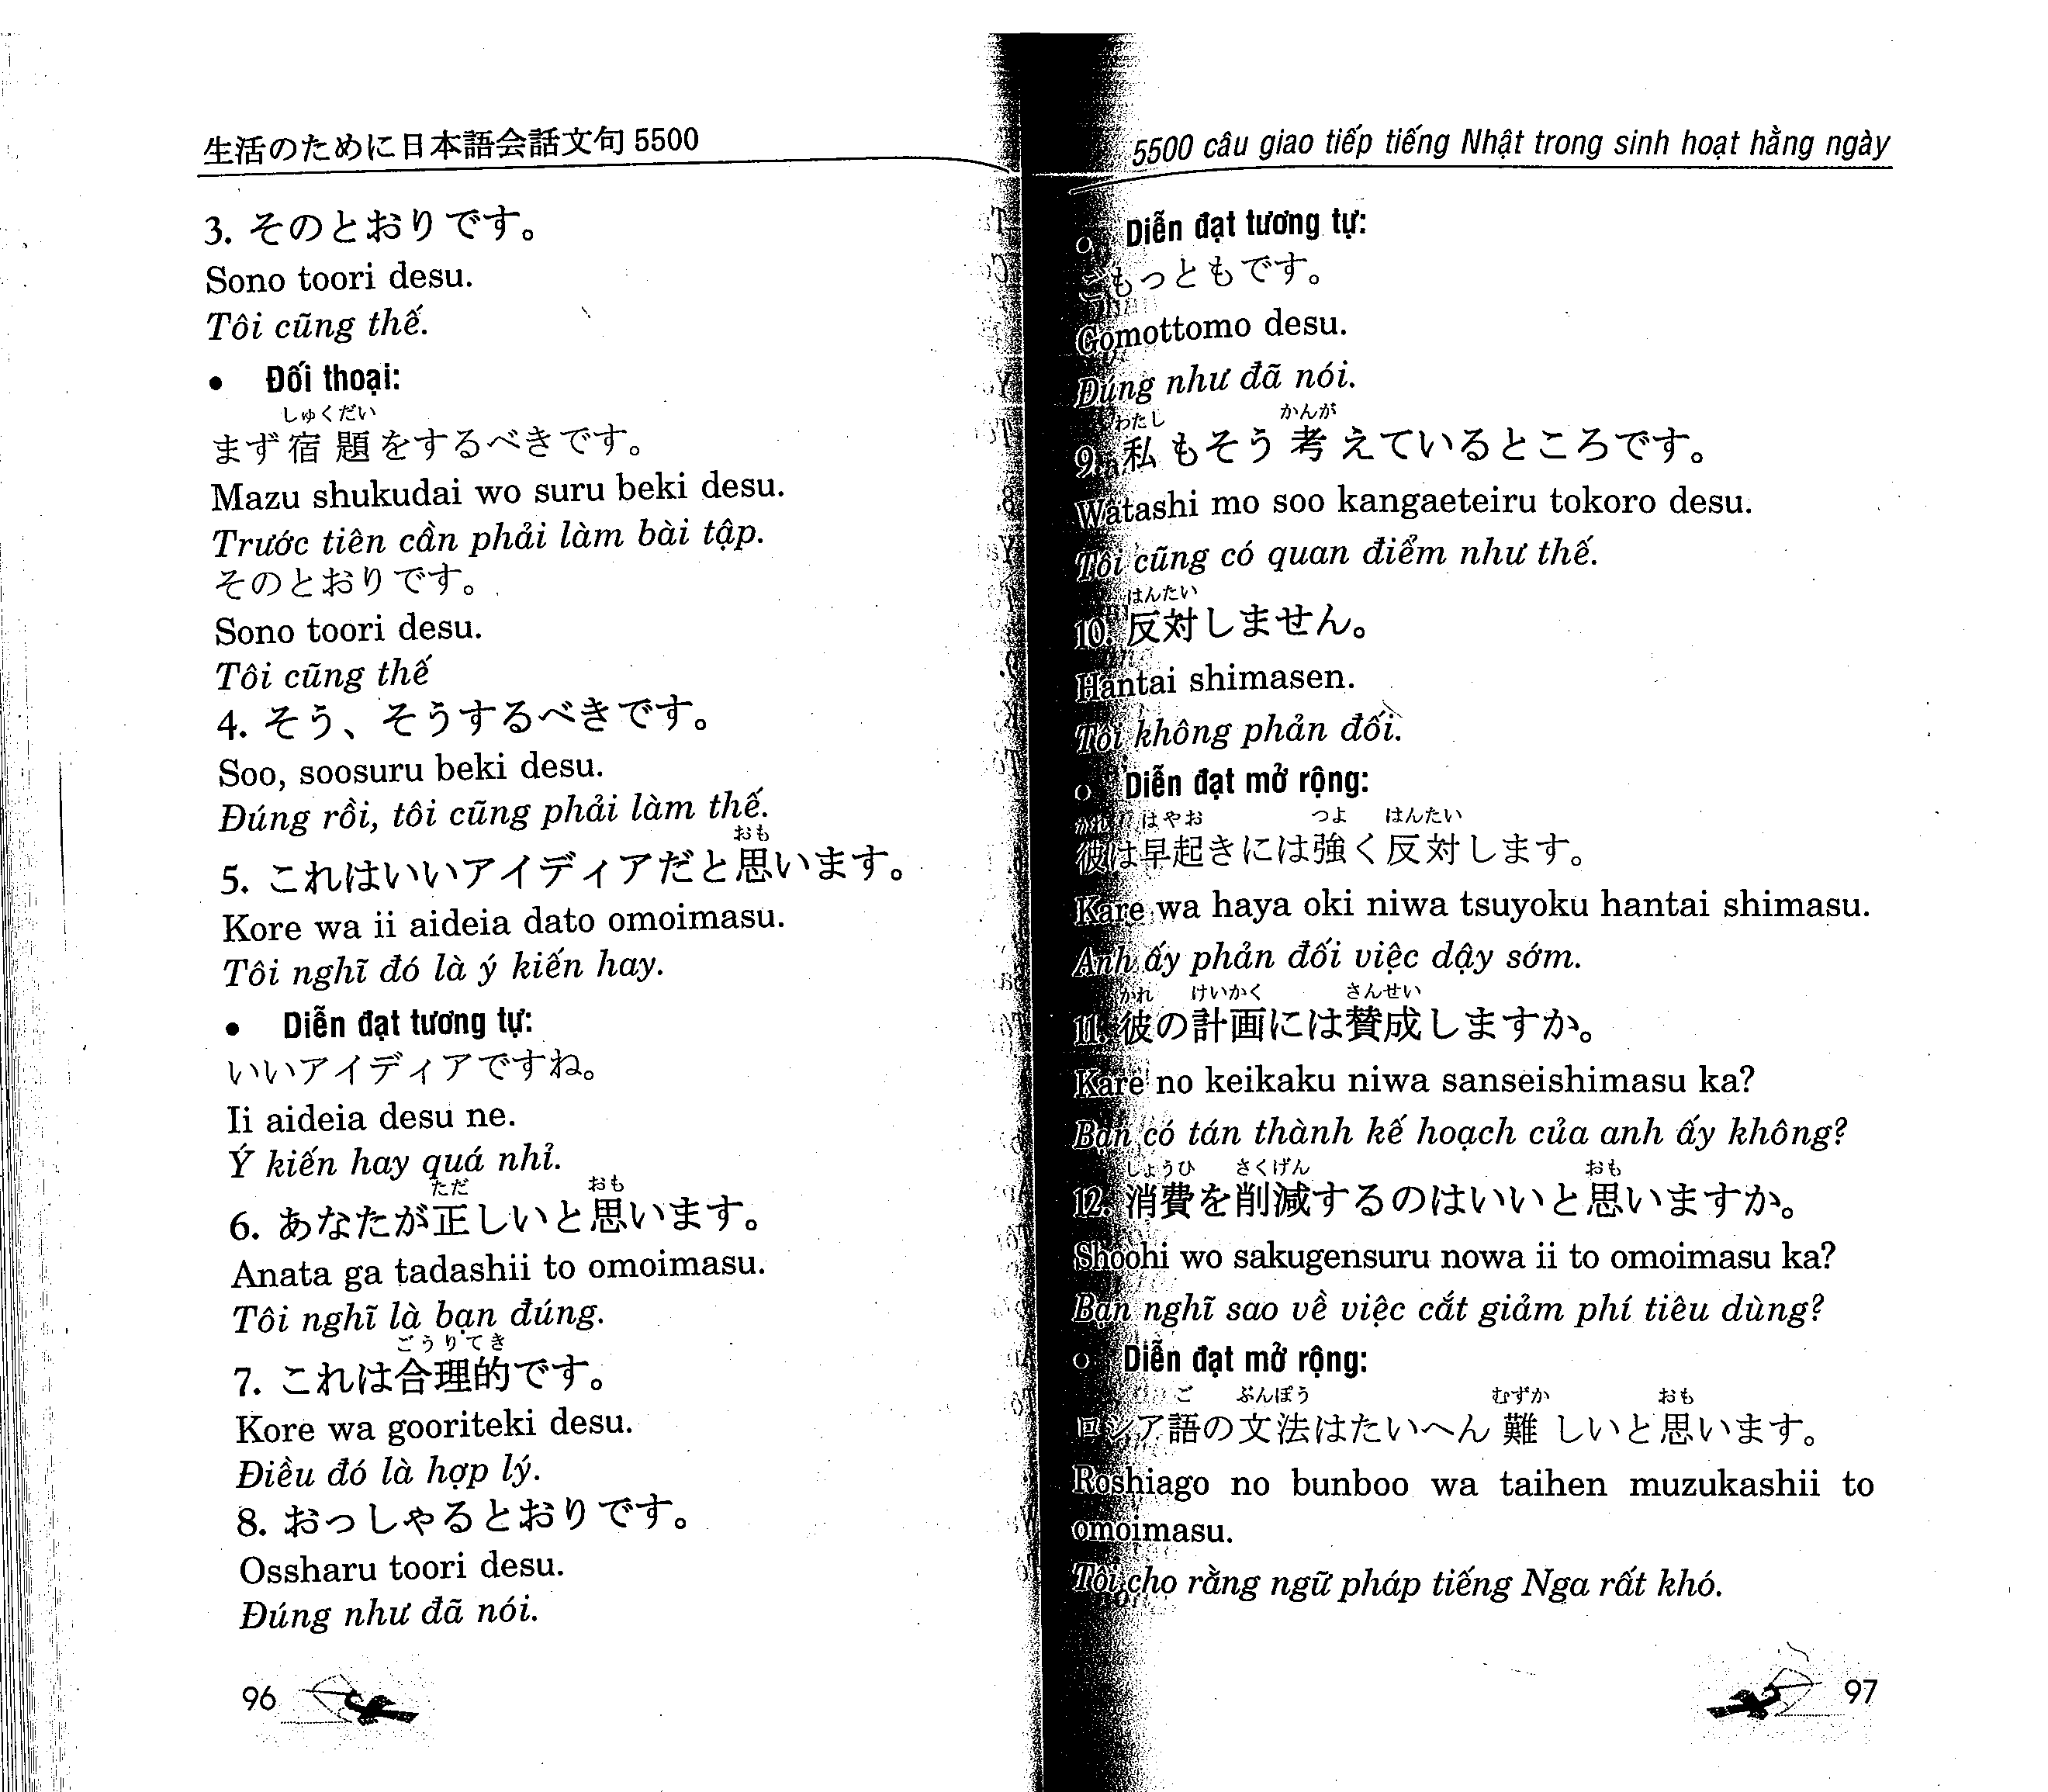 生活のために日本語会話文句5500
3. そのとおりです。
Sono toori desu.
Tôi cũng thế.
• Đối thoại:
しゅくだい
まず宿題をするべきです。
Mazu shukudai wo suru beki desu.
Trước tiên cần phải làm bài tập.
そのとおりです。
Sono toori desu.
Tôi cũng thế
4. そう、そうするべきです。
Soo, soosuru beki desu.
Đúng rồi, tôi cũng phải làm thế.
おも
5. これはいいアイディアだと思います。
Kore wa ii aideia dato omoimasu.
Tôi nghĩ đó là ý kiến hay.
• Diễn đạt tương tự:
いいアイディアですね。
Ii aideia desu ne.
Ý kiến hay quá nhỉ.
ただ おも
6. あなたが正しいと思います。
Anata ga tadashii to omoimasu.
Tôi nghĩ là bạn đúng.
ごうりてき
7. これは合理的です。
Kore wa gooriteki desu.
Điều đó là hợp lý.
8. おっしゃるとおりです。
Ossharu toori desu.
Đúng như đã nói.
96
5500 câu giao tiếp tiếng Nhật trong sinh hoạt hằng ngày
• Diễn đạt tương tự:
ごもっともです。
Gomottomo desu.
Đúng như đã nói.
わたし かんが
9. 私もそう考えているところです。
Watashi mo soo kangaeteiru tokoro desu.
Tôi cũng có quan điểm như thế.
はんたい
10. 反対しません。
Hantai shimasen.
Tôi không phản đối.
• Diễn đạt mở rộng:
かれ はやお つよ はんたい
彼は早起きには強く反対します。
Kare wa haya oki niwa tsuyoku hantai shimasu.
Anh ấy phản đối việc dậy sớm.
かれ けいかく さんせい
11. 彼の計画には賛成しますか。
Kare no keikaku niwa sanseishimasu ka?
Bạn có tán thành kế hoạch của anh ấy không?
しょうひ さくげん おも
12. 消費を削減するのはいいと思いますか。
Shoohi wo sakugensuru nowa ii to omoimasu ka?
Bạn nghĩ sao về việc cắt giảm phí tiêu dùng?
• Diễn đạt mở rộng:
ご ぶんぽう むずか おも
ロシア語の文法はたいへん難しいと思います。
Roshiago no bunboo wa taihen muzukashii to
omoimasu.
Tôi cho rằng ngữ pháp tiếng Nga rất khó.
97